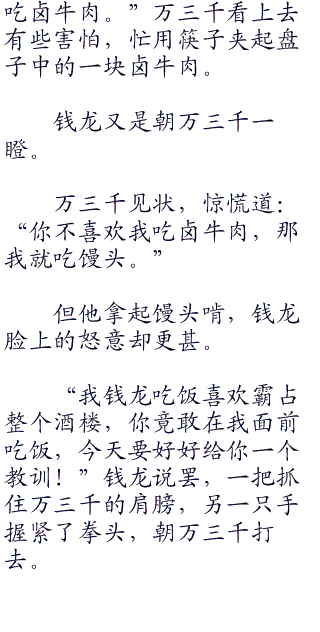 吃卤牛肉。”万三千看上去
有些害怕，忙用筷子夹起盘
子中的一块卤牛肉。
钱龙又是朝万三千一
瞪。
万三千见状，惊慌道：
“你不喜欢我吃卤牛肉，那
我就吃馒头。”
但他拿起馒头啃，钱龙
脸上的怒意却更甚。
“我钱龙吃饭喜欢霸占
整个酒楼，你竟敢在我面前
吃饭，今天要好好给你一个
教训！”钱龙说罢，一把抓
住万三千的肩膀，另一只手
握紧了拳头，朝万三千打
去。